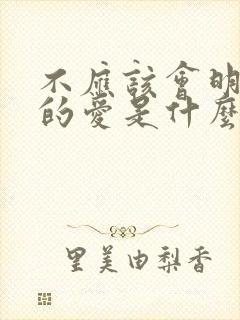 不應該會明
的愛是什麼
里美由梨香